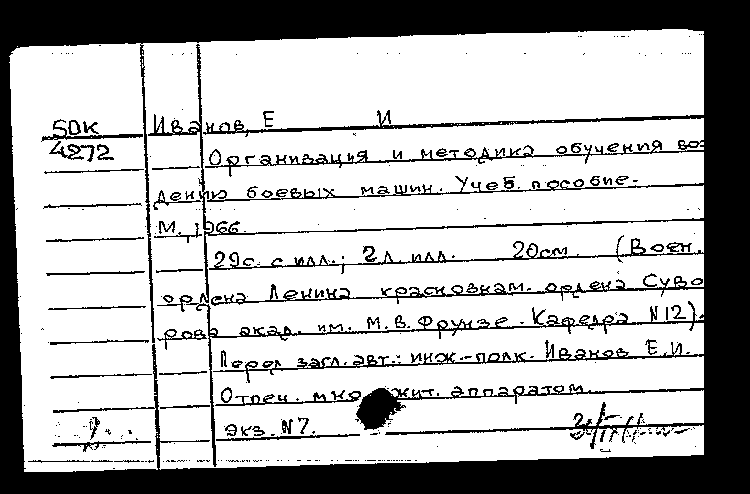 50К Иванов, Е И
4272 Организация и методика обучения во
дению боевых машин. Учеб. пособие.
М., 1966.
29с. с илл.; 2л. илл. 20см. (Воен.
ордена Ленина краснознам. ордена Суво
рова акад. им. М.В. Фрунзе. Кафедра N12).
Перед загл. авт.: инж.-полк. Иванов Е.И.
Отпеч. множит. аппаратом.
Экз. N7.